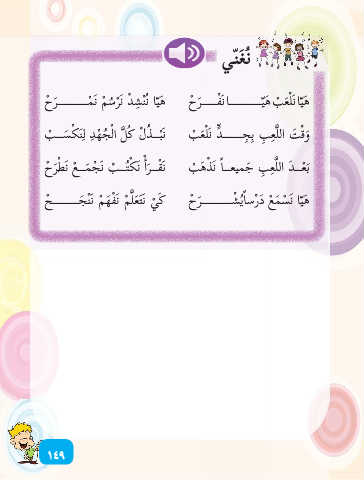 نُغَنّي
هَيّا نَلْعَبْ هَيّـــــا نَفْـــرَحْ هَيّا نُنْشِدْ نَرْسُمْ نَمْـــــرَحْ
وَقْتَ اللَّعِبِ بِجِـــدٍّ نَلْعَبْ نَبْـــذُلْ كُلَّ الْجُهْدِ لِنَكْسَـــبْ
بَعْـــدَ اللَّعِبِ جَميعـــاً نَذْهَبْ نَقْـــرَأْ نَكْتُـــبْ نَجْمَـــعْ نَطْرَحْ
هَيّا نَسْمَعْ دَرْساً يُشْـــــرَحْ كَيْ نَتَعَلَّمْ نَفْهَمْ نَنْجَـــــحْ
١٤٩